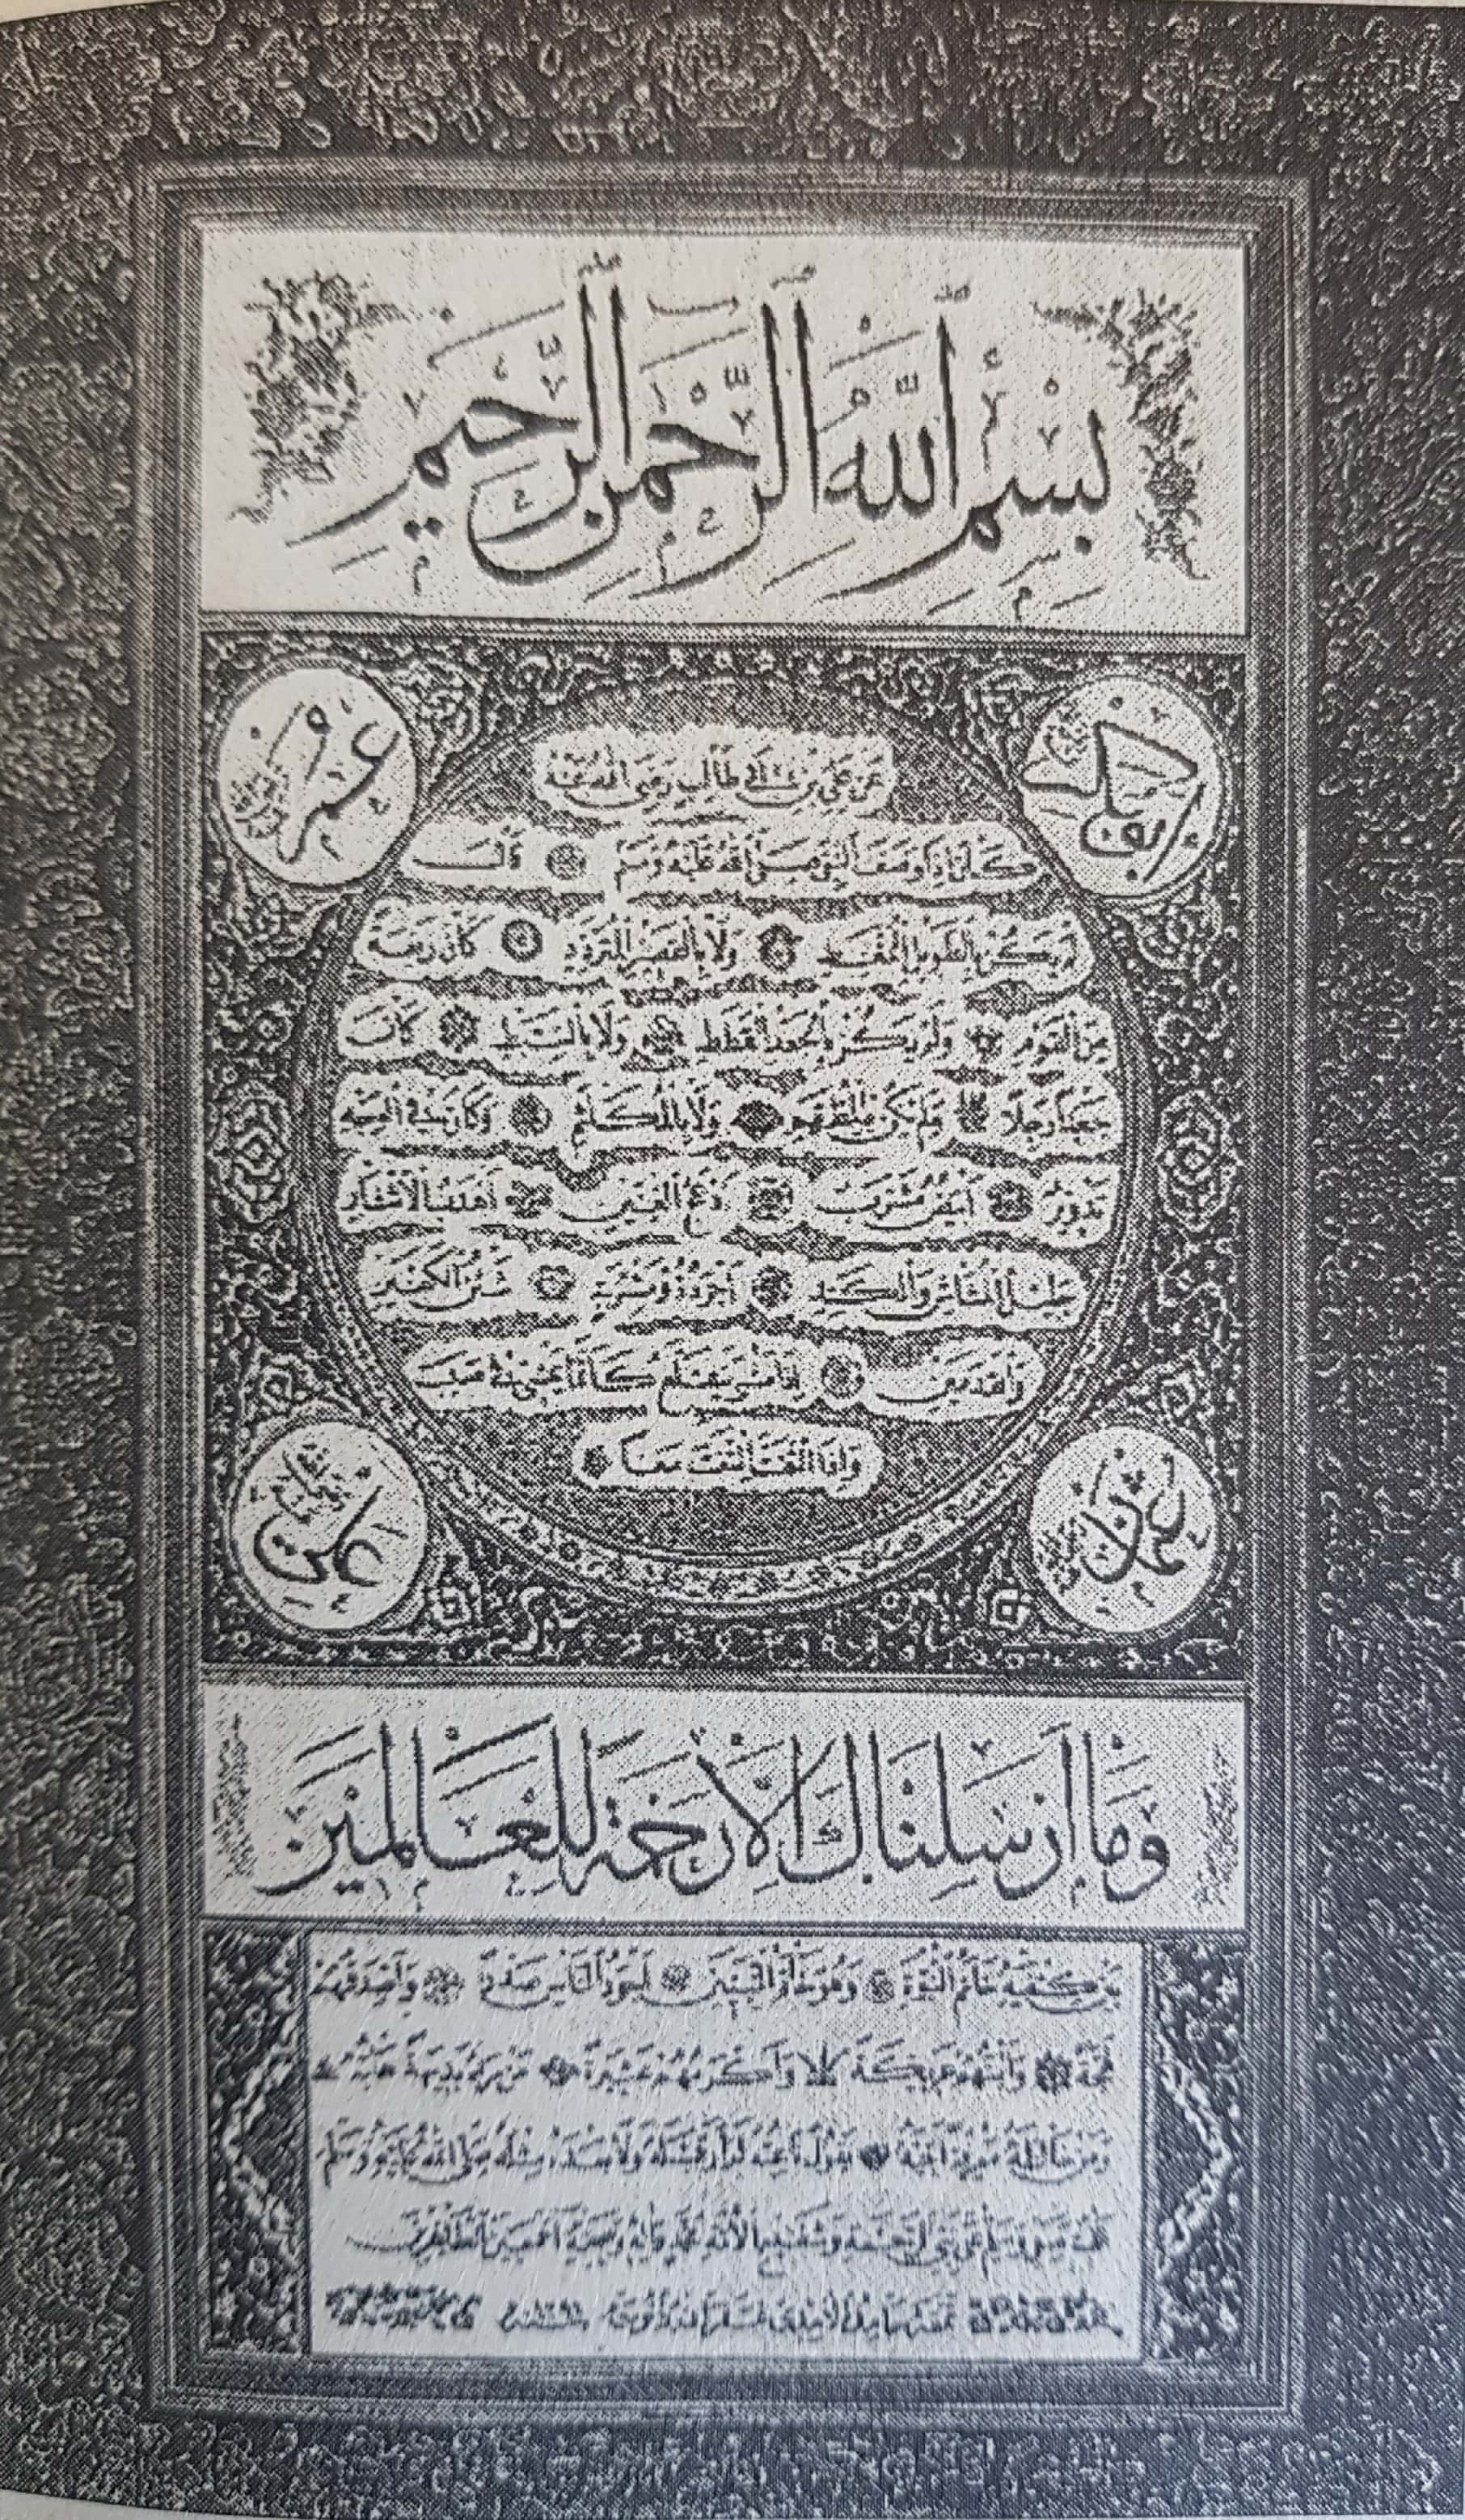 بِسْمِ اللَّهِ الرَّحْمَنِ الرَّحِيمِ
ابو بكر
عمر
عن علي بن ابي طالب رضي الله عنه
كان اذا وصف النبي صلى الله عليه وسلم قال
لم يكن بالطويل الممغط ولا بالقصير المتردد كان ربعة
من القوم ولم يكن بالجعد القطط ولا بالسبط كان
جعدا رجلا ولم يكن بالمطهم ولا بالمكلثم وكان في الوجه
تدوير ابيض مشرب ادعج العينين اهدب الاشفار
جليل المشاش والكتد اجرد ذو مسربة شثن الكفين
والقدمين اذا مشى يتقلع كانما يمشي في صبب
واذا التفت التفت معا
عثمان
علي
وَمَا أَرْسَلْنَاكَ إِلَّا رَحْمَةً لِلْعَالَمِينَ
بين كتفيه خاتم النبوة وهو خاتم النبيين اجود الناس صدرا واصدقهم
لهجة والينهم عريكة واكرمهم عشيرة من رآه بديهة هابه
ومن خالطه معرفة احبه يقول ناعته لم ار قبله ولا بعده مثله صلى الله عليه وسلم